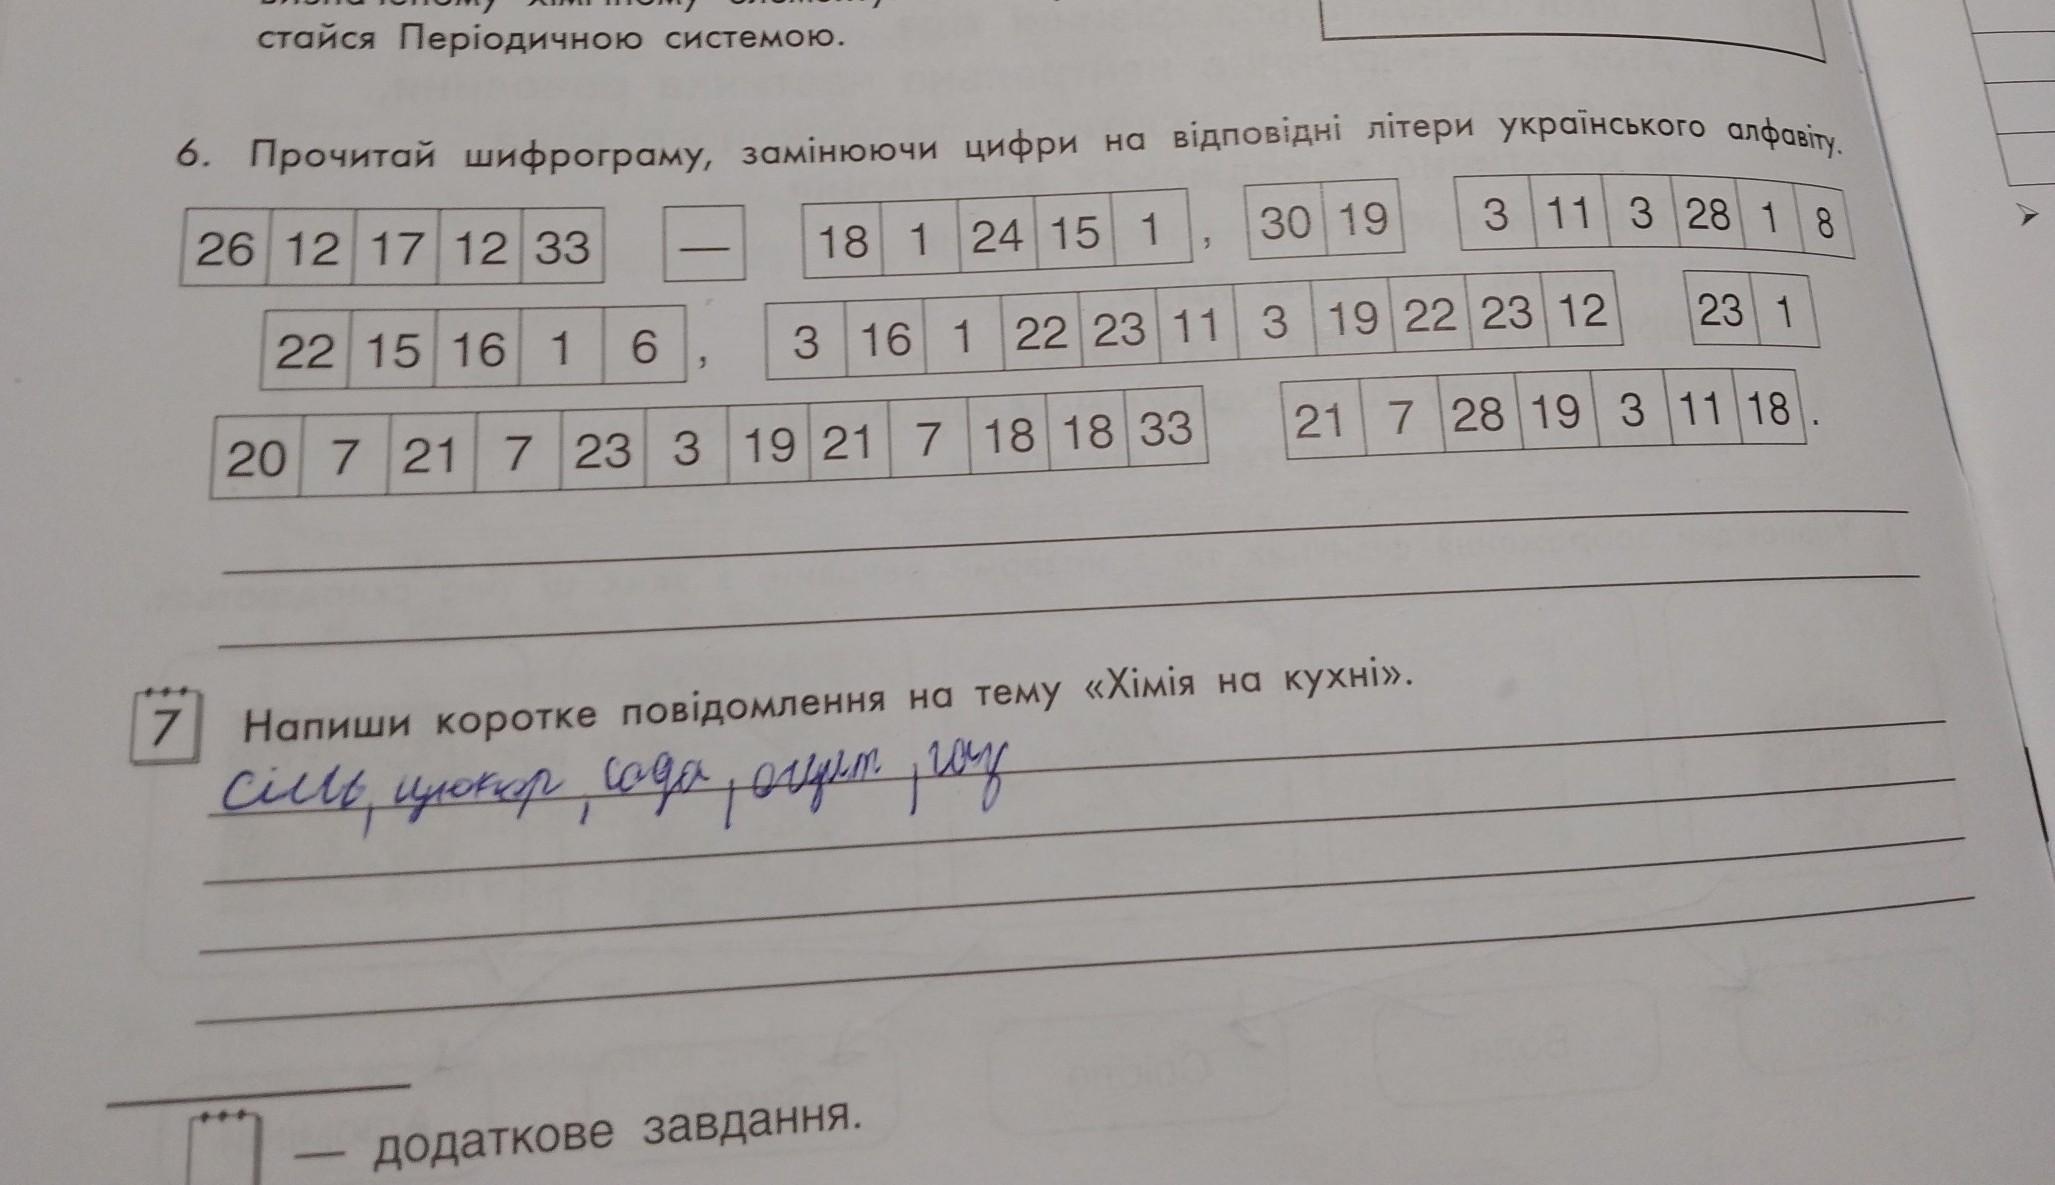 стайся Періодичною системою.
6. Прочитай шифрограму, замінюючи цифри на відповідні літери українського алфавіту.
26 12 17 12 33 — 18 1 24 15 1 , 30 19 3 11 3 28 1 8
22 15 16 1 6 , 3 16 1 22 23 11 3 19 22 23 12 23 1
20 7 21 7 23 3 19 21 7 18 18 33 21 7 28 19 3 11 18 .
7 Напиши коротке повідомлення на тему «Хімія на кухні».
сіль, цукор, сода, оцет,
— додаткове завдання.